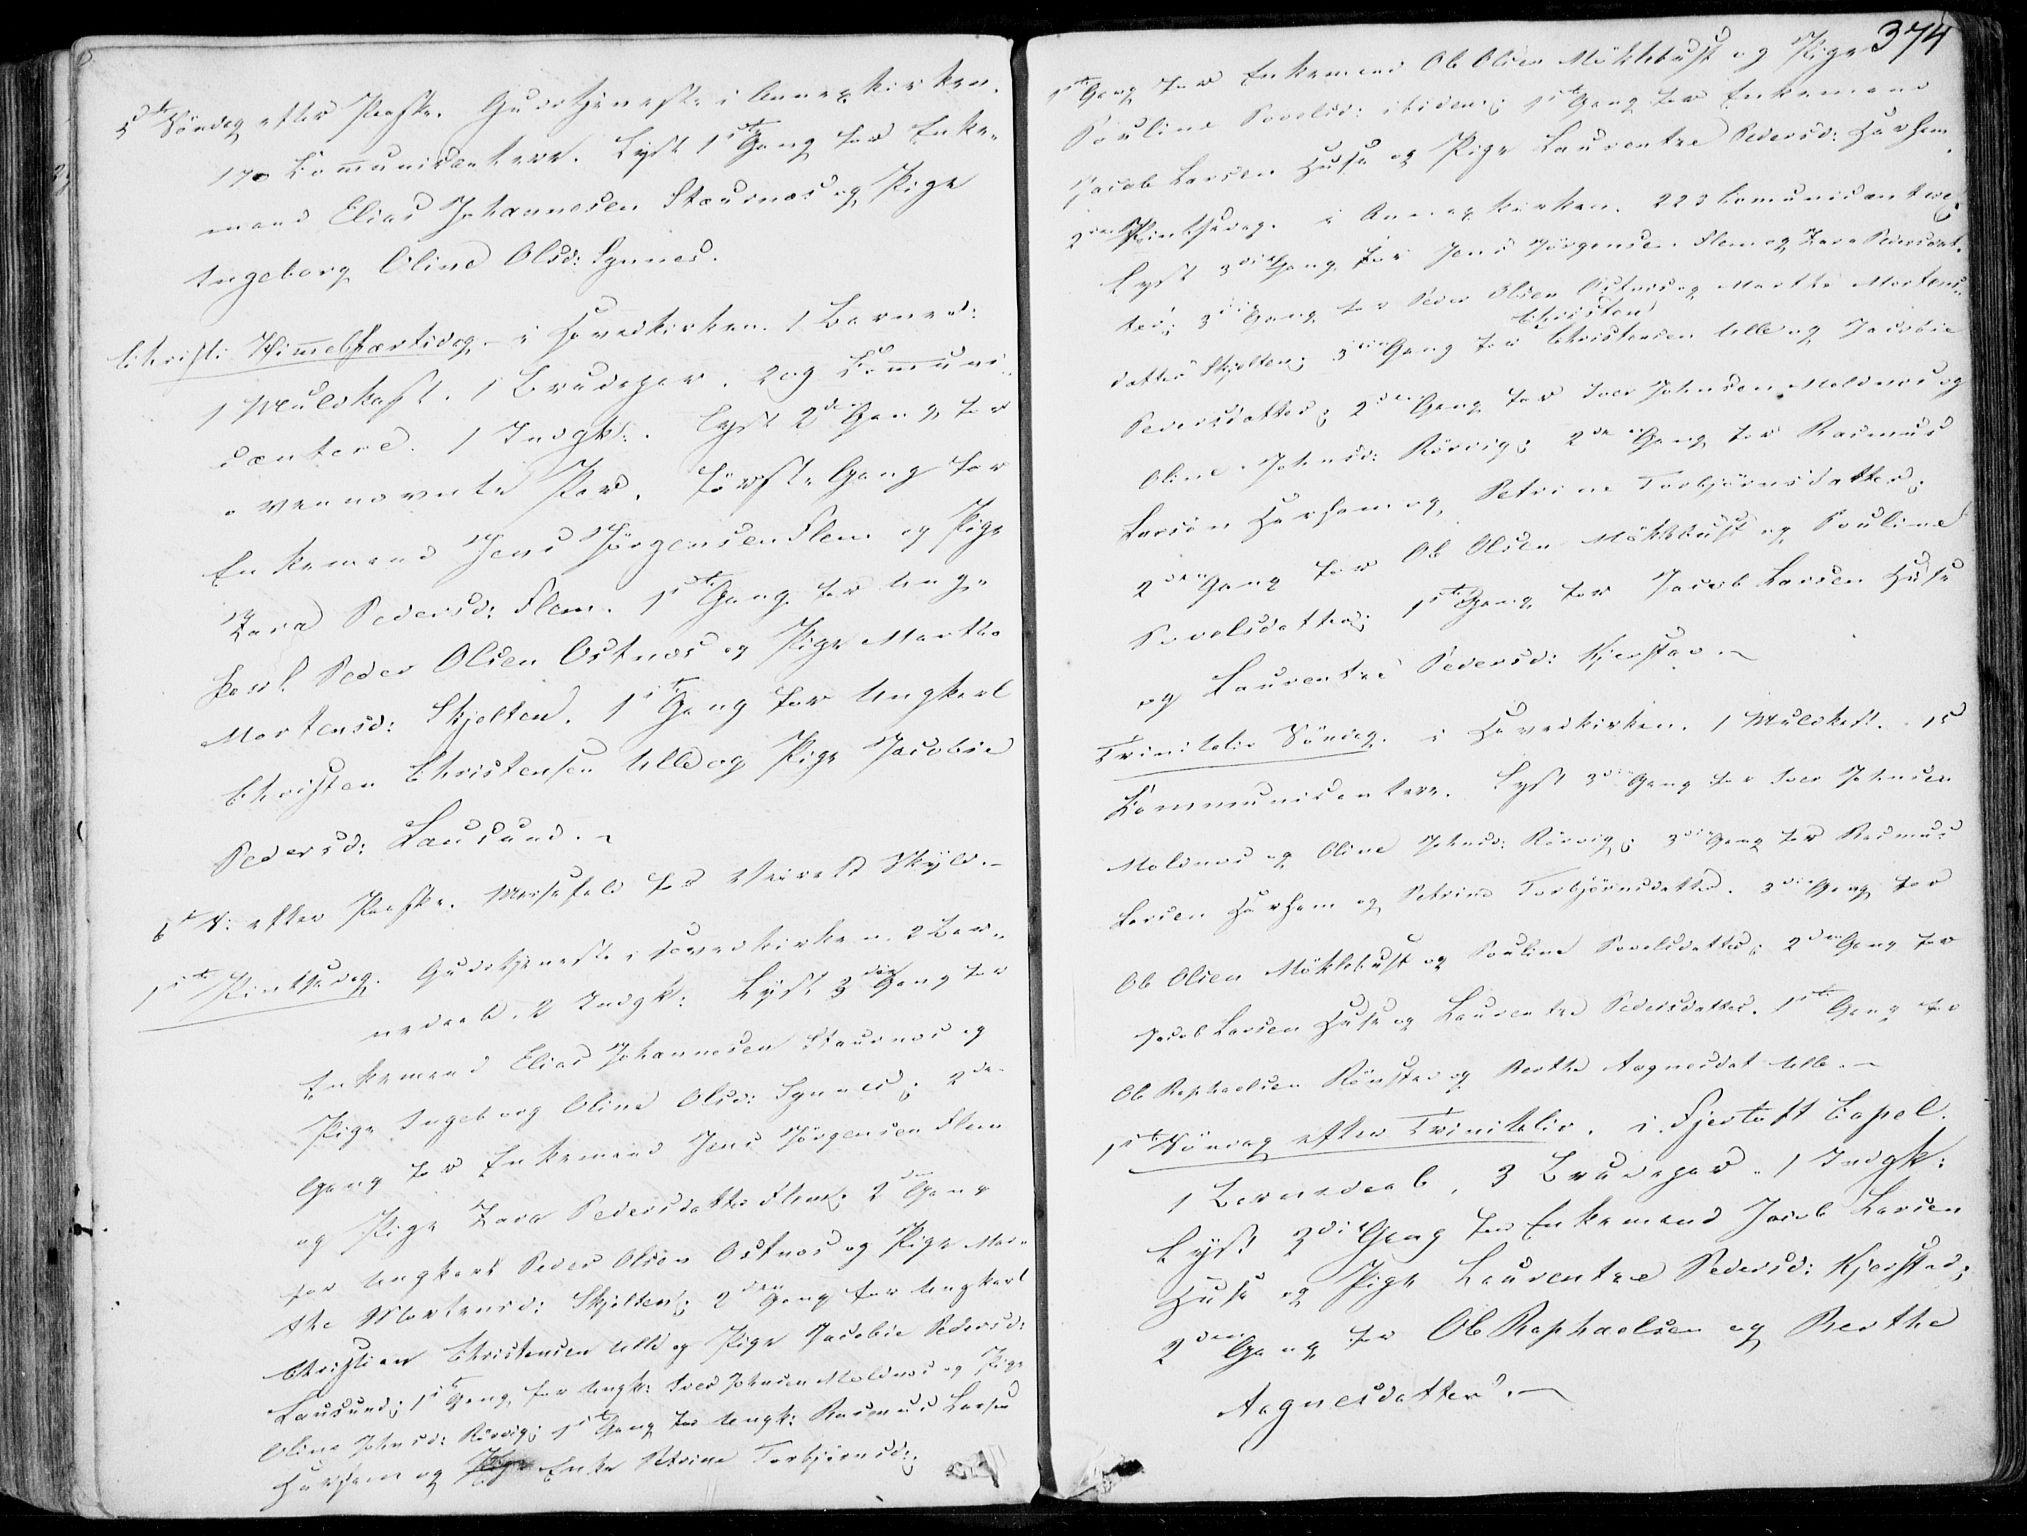 5te Söndag efter Paaske. Gudstjeneste i Annexkirken.
170 Communicantere. Lyst 1ste Gang for Enke-
mand Elias Johannesen Staurnæs og Pige
Ingeborg Oline Olsd: Synnes.
Christi Himmelfartsdag i Hovedkirken. 1 Barned:
1 Muldkast. 1 Brudepar. 209 Communi-
cantere. 1 Indgk: Lyst 2den Gang for
ovennævnte Par. Förste Gang for
Enkemand Jens Jörgensen Flem og Pige
Zara Pedersd: Flem. 1ste Gang for Ung-
karl Peder Olsen Ostnæs og Pige Marthe
Mortensd: Skjelten. 1ste Gang for Ungkarl
Christen Christensen Ulla og Pige Jacobie
Pedersd: Lausund.
6te S: efter Paaske. Messefald for Veirets Skyld.
1ste Pintsedag. Gudstjeneste i Hovedkirken. 2 Bar-
nedaab. 2 Indgk: Lyst 3die Gang for
Enkemand Elias Johannesen Staurnæs og
Pige Ingeborg Oline Olsd: Synnes; 2den
Gang for Enkemand Jens Jörgensen Flem
og Pige Zara Pedersdatter Flem; 2den Gang
for Ungkarl Peder Olsen Ostnæs og Pige Mar-
the Mortensd: Skjelten; 2den Gang for Ungkarl
Christian Christensen Ulla og Pige Jacobie Pedersd:
Lausund; 1ste Gang for Ungk: Iver Johnsen Moldnæs og Pige
Oline Johnsd: Rörvig; 1ste Gang for Ungk: Rasmus Larsen
Harham og Enke Petrine Torbjörnsd:;
374
1ste Gang for Enkemand Ole Olsen Möklebust og Pige
Pauline Povelsd: ibidem; 1ste Gang for Enkemand
Jacob Larsen Huse og Pige Laurentze Pedersd: Harham.
2den Pintsedag. i Annexkirken. 223 Communicantere;
Lyst 3die Gang for Jens Jörgensen Flem og Zara Pedersdat-
ter; 3die Gang for Peder Olsen Ostnæs og Marthe Mortens-
datter Skjelten; 3die Gang for Christen Christensen Ulla og Jacobie
Pedersdatter; 2den Gang for Iver Johnsen Moldnæs og
Oline Johnsd: Rörvig; 2den Gang for Rasmus
Larsen Harham og Petrine Torbjörnsdatter;
2den Gang for Ole Olsen Möklebust og Pauline
Povelsdatter; 1ste Gang for Jacob Larsen Huse
og Laurentze Pedersd: Kjerstad.
Trinitatis Söndag. i Hovedkirken. 1 Muldkast. 15
Communicantere. Lyst 3die Gang for Iver Johnsen
Moldnæs og Oline Johnsd: Rörvig; 3die Gang for Rasmus
Larsen Harham og Petrine Torbjörnsdatter. 3die Gang for
Ole Olsen Möklebust og Pauline Povelsdatter; 2den Gang for
Jacob Larsen Huse og Laurentze Pedersdatter. 1ste Gang for
Ole Raphaelsen Rönstad og Berthe Aagnesdat Ulla.
1ste Söndag efter Trinitatis. i Fjertoft Capel.
1 Barnedaab, 3 Brudepar. 1 Indgk:
Lyst 3die Gang for Enkemand Jacob Larsen
Huse og Pige Laurentze Pedersd: Kjerstad;
2den Gang for Ole Raphaelsen og Berthe
Aagnesdatter.